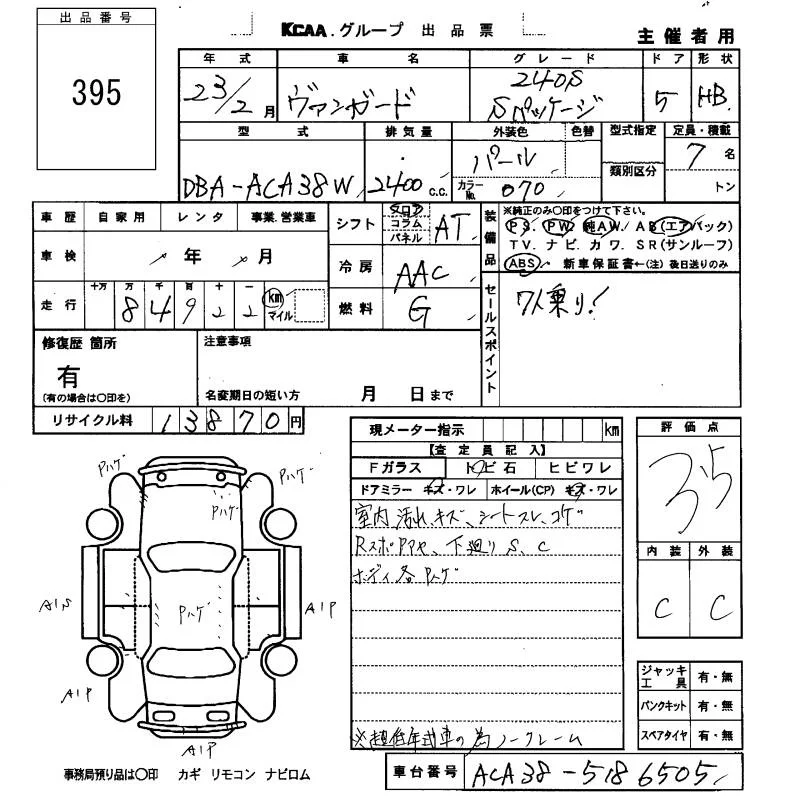 出品番号
395
KCAA.グループ 出品票
主催者用
年式 車名 グレード ドア 形状
23/2月 ヴァンガード 240S Sパッケージ 5 HB
型式 排気量 外装色 色替 型式指定 定員・積載
類別区分
DBA-ACA38W 2400c.c. パール カラーNo. 070 7名
トン
車歴 自家用 レンタ 事業.営業車
シフト フロア コラム パネル AT
装備品
※純正のみ〇印をつけて下さい。
PS. PW. 純AW. AB(エアバック)
TV. ナビ. カワ. SR(サンルーフ)
ABS. 新車保証書←(注)後日送りのみ
車検 年 月
冷房 AAC
走行 十万 万 千 百 十 一 km マイル
84922
燃料 G
セールスポイント
7人乗り!
修復歴 箇所
有
(有の場合は〇印を)
注意事項
名変期日の短い方 月 日まで
リサイクル料 13870円
現メーター指示 km
【査定員記入】
Fガラス トビ石 ヒビワレ
ドアミラー キズ・ワレ ホイール(CP) キズ・ワレ
室内 汚れ、キズ、シートスレ、コゲ
下廻りS、C
ボディ各Pハゲ
※超低年式車の為ノークレーム
評価点
3.5
内装 外装
C C
Pハゲ
Pハゲ
Pハゲ
Pハゲ
A1S
A1P
A1P
A1P
ジャッキ工具 有・無
パンクキット 有・無
スペアタイヤ 有・無
事務局預り品は〇印 カギ リモコン ナビロム
車台番号 ACA38-5186505